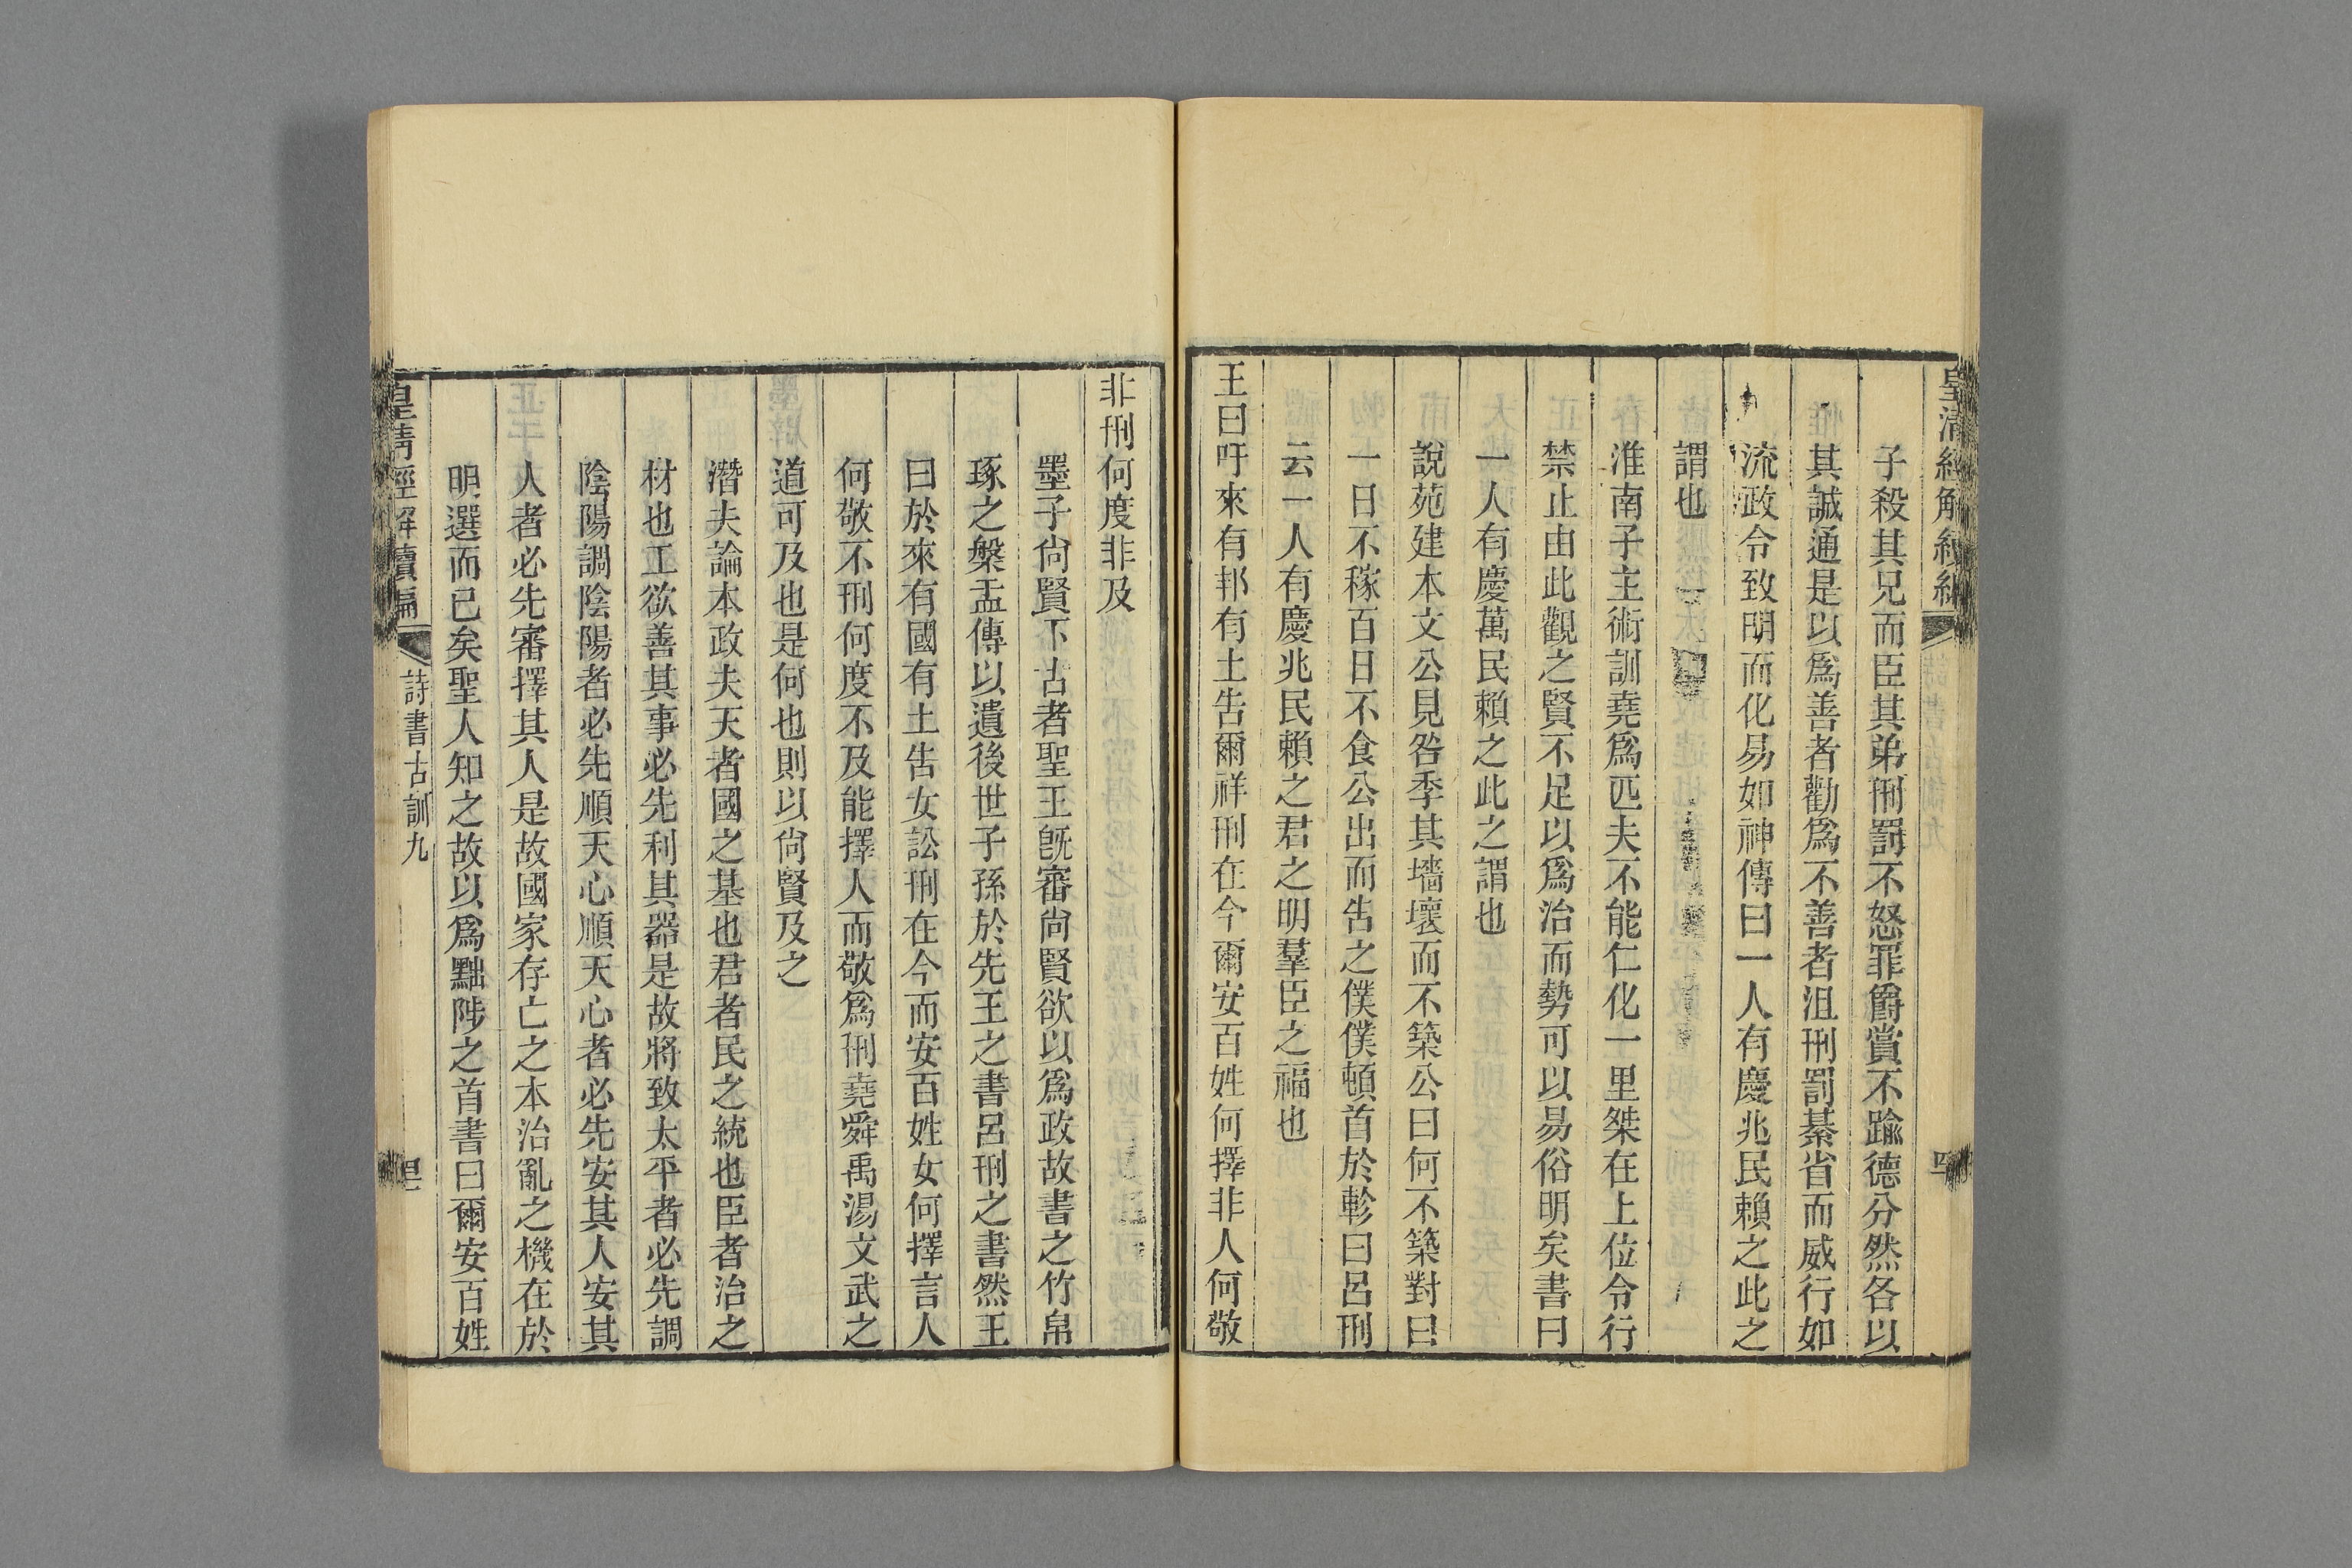 子殺其兄而臣其弟刑罰不怒罪爵賞不踰德分然各以
其誠通是以爲善者勸爲不善者沮刑罰綦省而威行如
流政令致明而化易如神傳曰一人有慶兆民賴之此之
謂也
淮南子主術訓堯爲匹夫不能仁化一里桀在上位令行
禁止由此觀之賢不足以爲治而勢可以易俗明矣書曰
一人有慶萬民賴之此之謂也
說苑建本文公見咎季其墻壞而不築公曰何不築對曰
一日不稼百日不食公出而告之僕僕頓首於軫曰呂刑
云一人有慶兆民賴之君之明羣臣之福也
王曰吁來有邦有土告爾祥刑在今爾安百姓何擇非人何敬
非刑何度非及
墨子尚賢下古者聖王旣審尚賢欲以爲政故書之竹帛
琢之槃盂傳以遺後世子孫於先王之書呂刑之書然王
曰於來有國有土告女訟刑在今而安百姓女何擇言人
何敬不刑何度不及能擇人而敬爲刑堯舜禹湯文武之
道可及也是何也則以尚賢及之
潛夫論本政夫天者國之基也君者民之統也臣者治之
材也工欲善其事必先利其器是故將致太平者必先調
陰陽調陰陽者必先順天心順天心者必先安其人安其
人者必先審擇其人是故國家存亡之本治亂之機在於
明選而已矣聖人知之故以爲黜陟之首書曰爾安百姓
皇清經解續編
詩書古訓九